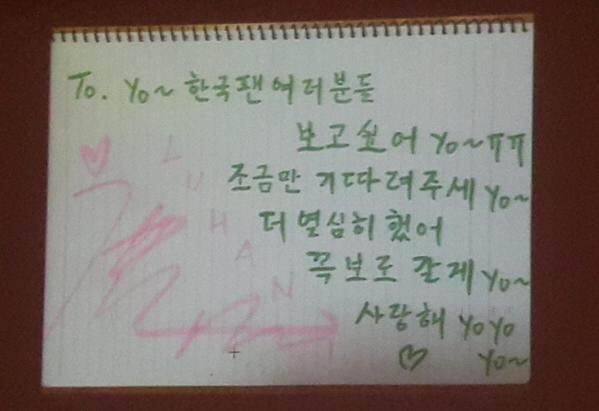 To. yo~ 한국팬여러분들
보고싶어 yo~ㅠㅠ
조금만 기다려주세 yo~
더 열심히 했어
꼭 보로 갈게 yo~
사랑해 yoyo
♡ yo~
♡ LUHAN